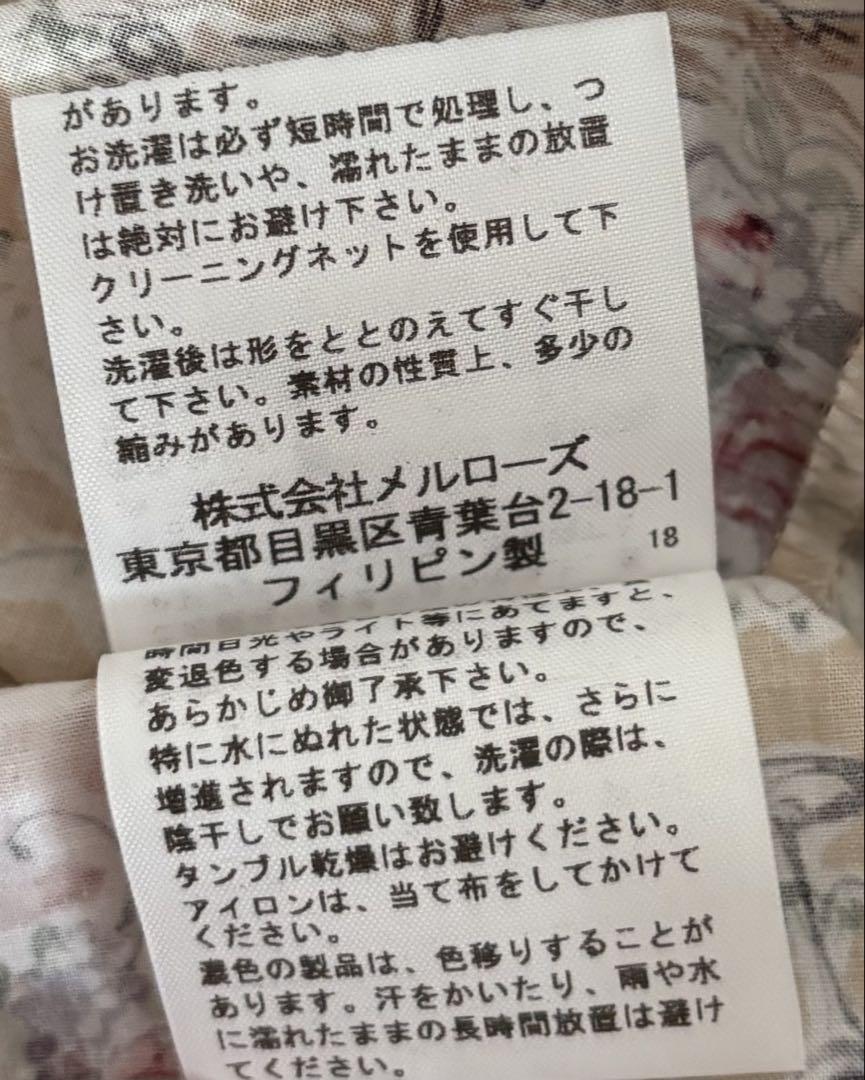 があります。
お洗濯は必ず短時間で処理し、つ
け置き洗いや、濡れたままの放置
は絶対にお避け下さい。
クリーニングネットを使用して下
さい。
洗濯後は形をととのえてすぐ干し
て下さい。素材の性質上、多少の
縮みがあります。
株式会社メルローズ
東京都目黒区青葉台2-18-1
フィリピン製
18
時間日光やライト等にあてますと、
変退色する場合がありますので、
あらかじめ御了承下さい。
特に水にぬれた状態では、さらに
増進されますので、洗濯の際は、
陰干しでお願い致します。
タンブル乾燥はお避けください。
アイロンは、当て布をしてかけて
ください。
濃色の製品は、色移りすることが
あります。汗をかいたり、雨や水
に濡れたままの長時間放置は避け
てください。